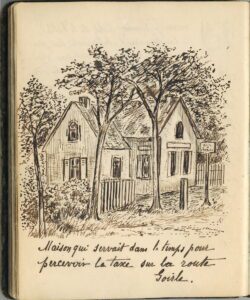 Maison qui servait dans le temps pour
percevoir la taxe sur la route